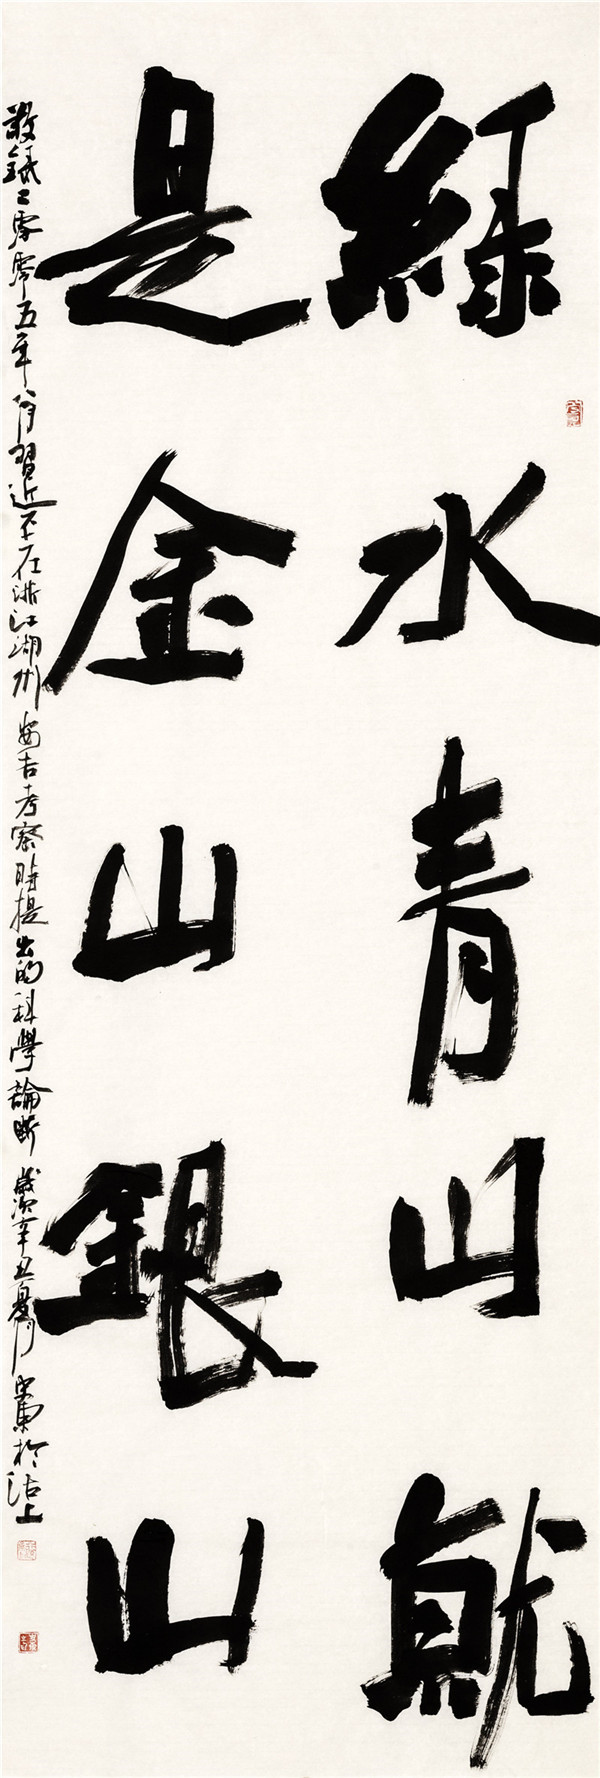 綠水青山就
是金山銀山
敬錄二零零五年八月習近平在浙江湖州安吉考察時提出的科學論斷 歲次辛丑夏月 於沽上